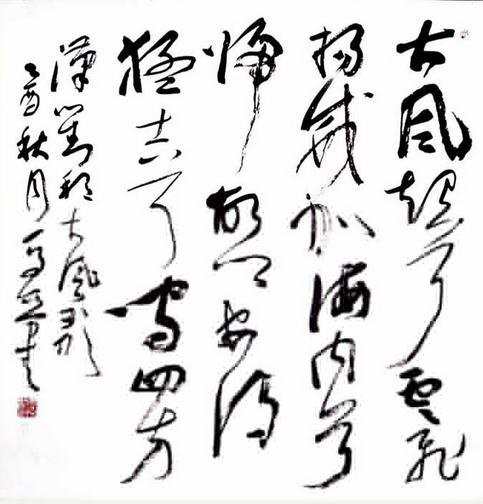 大風起兮雲飛
揚威加海内兮
歸故鄉安得
猛士兮守四方
漢劉邦大風歌
乙酉秋月書